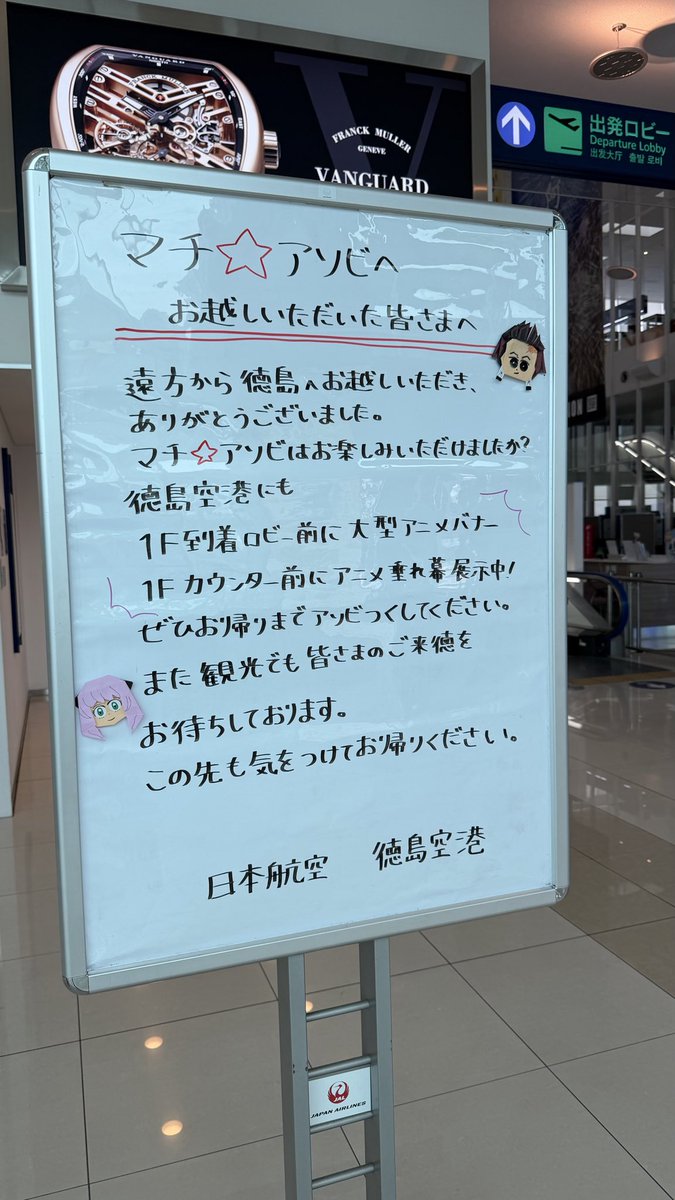 VANGUARD
FRANCK MULLER
FRANCK MULLER
GENEVE
VANGUARD
出発ロビー
Departure Lobby
出发大厅 출발 로비
マチ☆アソビへ
お越しいただいた皆さまへ
遠方から徳島へお越しいただき、
ありがとうございました。
マチ☆アソビはお楽しみいただけましたか?
徳島空港にも
1F到着ロビー前に大型アニメバナー
1Fカウンター前にアニメ垂れ幕展示中!
ぜひお帰りまでアソビつくしてください。
また観光でも皆さまのご来徳を
お待ちしております。
この先も気をつけてお帰りください。
日本航空 徳島空港
JAL
JAPAN AIRLINES